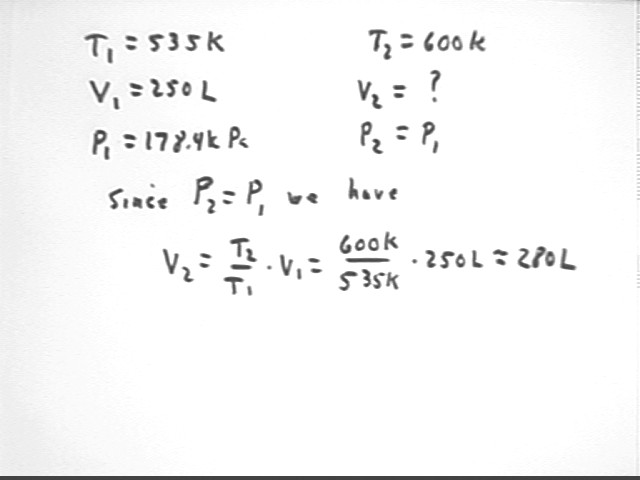 T₁ = 535K T₂ = 600K
V₁ = 250 L V₂ = ?
P₁ = 178.4k Pa P₂ = P₁
Since P₂ = P₁ we have
V₂ = T₂/T₁ · V₁ = 600K/535K · 250L ≈ 280L